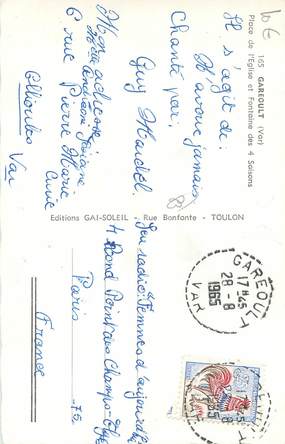 10 €
165 GAREOULT (Var)
Place de l'Eglise et Fontaine des 4 Saisons
Il s'agit de:
N'avoue jamais
Chanté par:
Guy Mardel.
6 rue Pierre Marie
Curie
Ollioules
Var
Editions GAI-SOLEIL - Rue Bonfante - TOULON
Jeu radio: Femmes d'aujourd'hui
4 Rond Point des Champs-Elysées
Paris
75
France
GAREOULT
17H45
28-8
1965
VAR